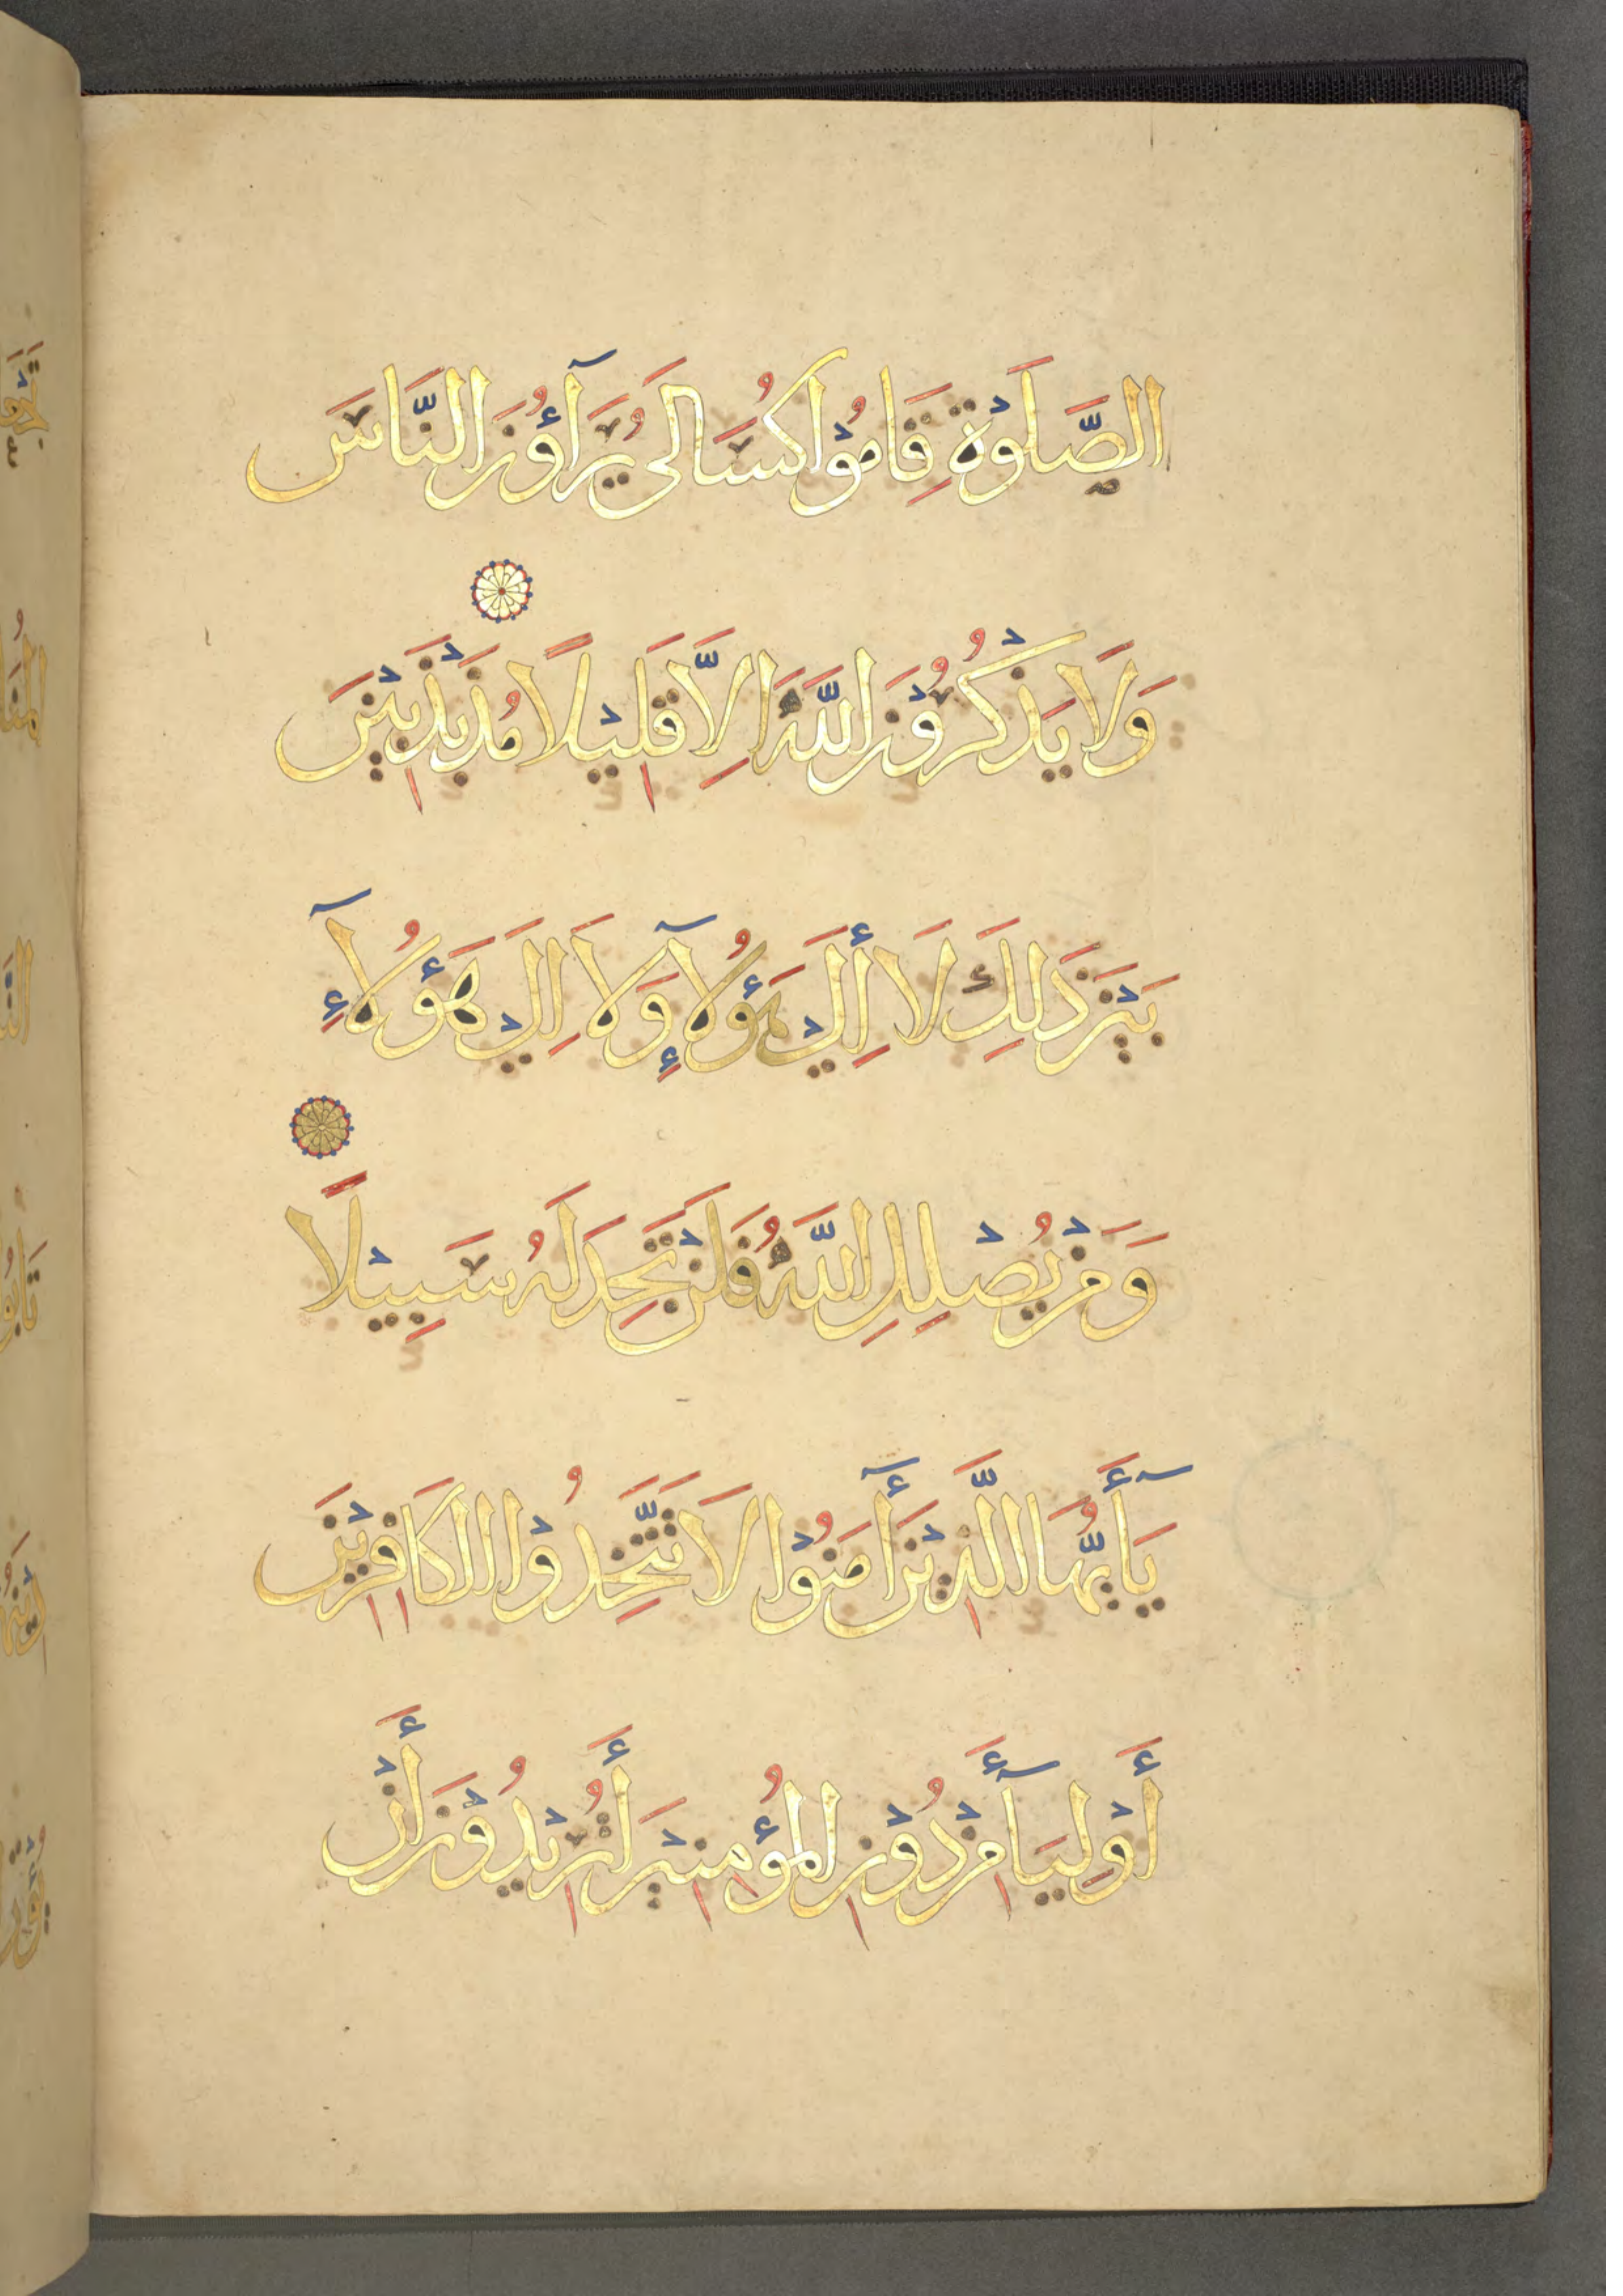 الصَّلَوٰةِ قَامُوْا كُسَالَى يُرَآؤُنَ النَّاسَ
وَلَا يَذْكُرُوْنَ اللَّهَ اِلَّا قَلِيْلًا مُذَبْذَبِيْنَ
بَيْنَ ذَلِكَ لَا أِلَىْ هَؤُلَآءِ وَلَا اِلَىْ هَؤُلَآءِ
وَمَنْ يُضْلِلِ اللَّهُ فَلَنْ تَجِدَ لَهُ سَبِيْلًا
يَآأَيُّهَا الَّذِيْنَ أَآمَنُوْا لَا تَتَّخِذُوْا الْكَافِرِيْنَ
أَوْلِيَآأَ مِنْ دُوْنِ الْمُؤْمِنِيْنَ أَتُرِيْدُوْنَ أَنْ